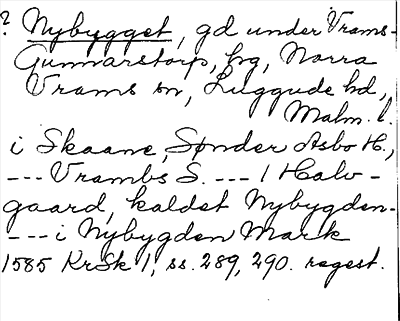 ? Nybygget, gd under Vrams-
Gunnarstorp, bg, Norra
Vrams sn, Luggude hd,
Malm. l.
i Skaane, Sønder Asbo H.,
--- Vrambs S. --- 1 Halv-
gaard, kaldet Nybygden-
--- i Nybygden Mark
1585 KrSk 1, ss. 289, 290. regest.